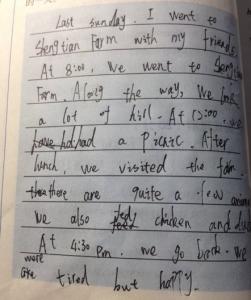 Last sunday. I went to
Shengtian Farm with my friends
At 8:00, We went to Sheng
Farm. Along the way, We
a lot of hill. At 12:00 . we
had a picnic. After
lunch, we visited the
there are quite a few
We also chicken and
At 4:30 pm. we go back. We
were tired but happy.